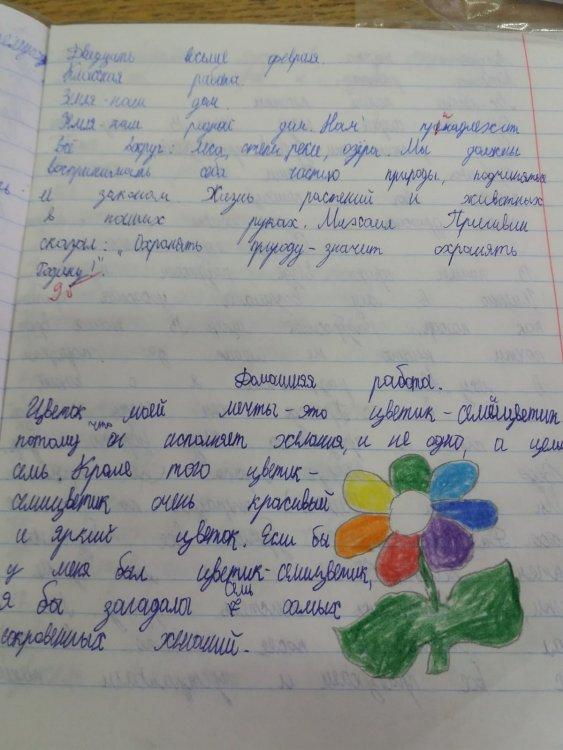 Двадцать восьмое февраля.
Классная работа.
Земля-наш дом.
Земля-наш родной дом. Нам принадлежит
всё вокруг: леса, степи, реки, озёра. Мы должны
воспринимать себя частью природы, подчиняться
её законам. Жизнь растений и животных
в наших руках. Михаил Пришвин
сказал: „Охранять природу-значит охранять
Родину!"
9б
Домашняя работа.
Цветок моей мечты-это цветик-семицветик
потому что он исполняет желания, и не одно, а целых
семь. Кроме того цветик-
семицветик очень красивый
и яркий цветок. Если бы
у меня был цветик-семицветик,
я бы загадала семь самых
сокровенных желаний.